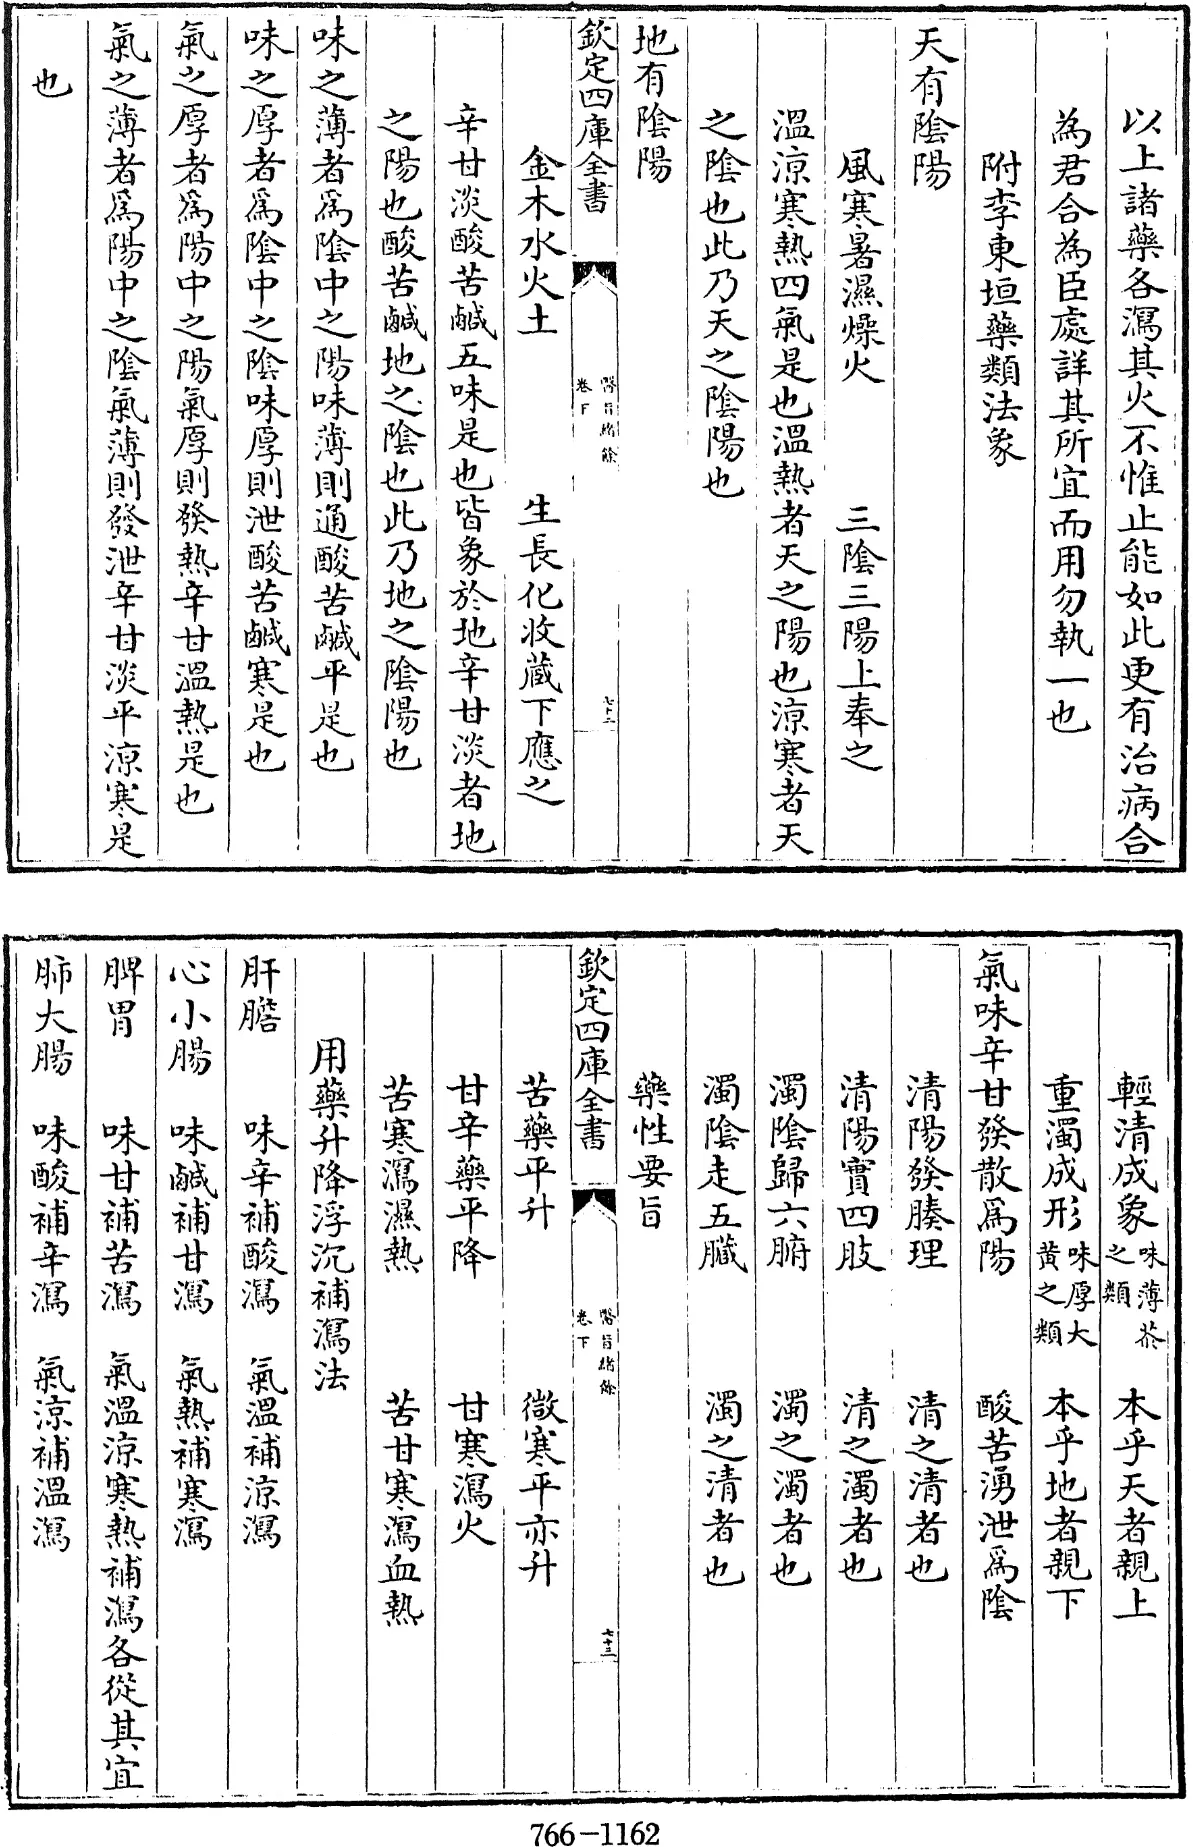 以上諸藥各瀉其火不惟止能如此更有治病合
為君合為臣處詳其所宜而用勿執一也
附李東垣藥類法象
天有陰陽
風寒暑濕燥火　三陰三陽上奉之
溫涼寒熱四氣是也溫熱者天之陽也涼寒者天
之陰也此乃天之陰陽也
地有陰陽
欽定四庫全書　醫旨緒餘　卷下　七十二
金木水火土　生長化收蔵下應之
辛甘淡酸苦鹹五味是也皆象於地辛甘淡者地
之陽也酸苦鹹地之陰也此乃地之陰陽也
味之薄者爲陰中之陽味薄則通酸苦鹹平是也
味之厚者爲陰中之陰味厚則泄酸苦鹹寒是也
氣之厚者爲陽中之陽氣厚則發熱辛甘溫熱是也
氣之薄者爲陽中之陰氣薄則發泄辛甘淡平涼寒是
也
輕清成象味薄茶之類　本乎天者親上
重濁成形味厚大黄之類　本乎地者親下
氣味辛甘發散爲陽　酸苦湧泄爲陰
清陽發腠理　清之清者也
清陽實四肢　清之濁者也
濁陰歸六腑　濁之濁者也
濁陰走五臟　濁之清者也
藥性要旨
欽定四庫全書　醫旨緒餘　卷下　七十三
苦藥平升　微寒平亦升
甘辛藥平降　甘寒瀉火
苦寒瀉濕熱　苦甘寒瀉血熱
用藥升降浮沉補瀉法
肝膽　味辛補酸瀉　氣溫補涼瀉
心小腸　味鹹補甘瀉　氣熱補寒瀉
脾胃　味甘補苦瀉　氣溫涼寒熱補瀉各從其宜
肺大腸　味酸補辛瀉　氣涼補溫瀉
766-1162